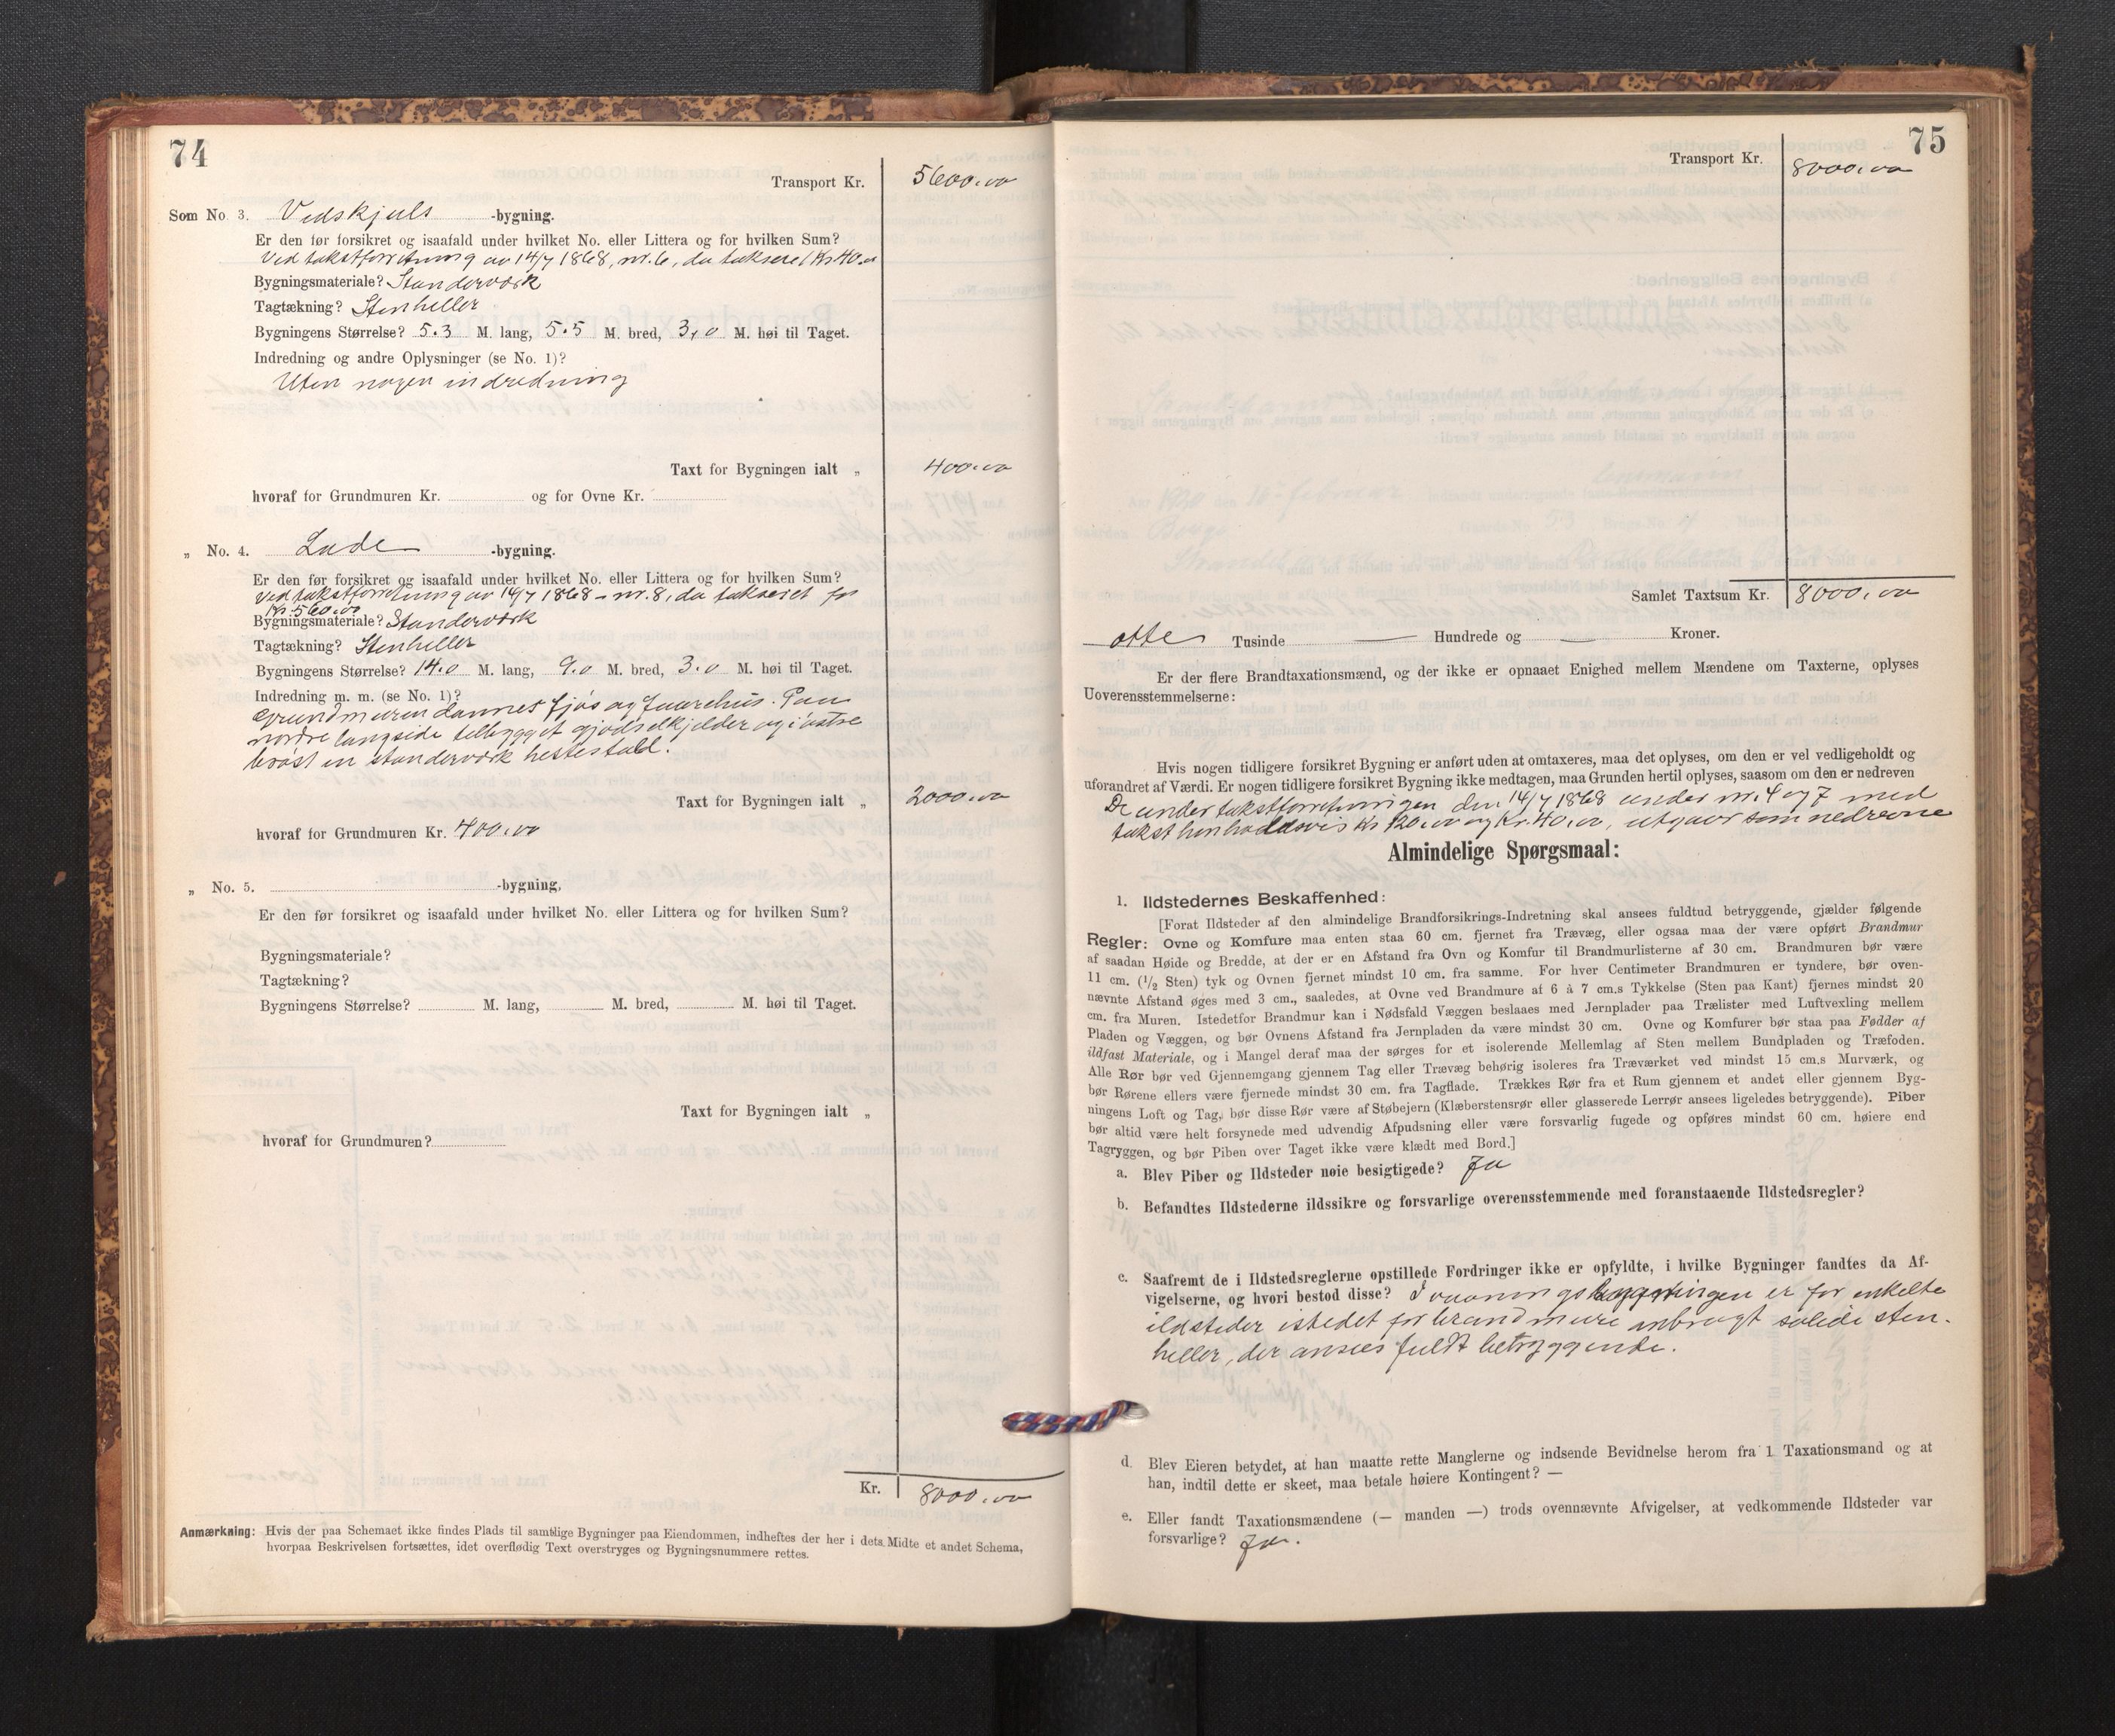 74
Transport Kr. 5600.00
Som No. 3. Vedskjuls -bygning.
Er den før forsikret og isaafald under hvilket No. eller Littera og for hvilken Sum?
Ved takstforretning av 14/7 1868, nr. 6, da takseret Kr 40.00
Bygningsmateriale? Standerværk
Tagtækning? Stenheller
Bygningens Størrelse? 5.3 M. lang, 5.5 M. bred, 3,0 M. høi til Taget.
Indredning og andre Oplysninger (se No. 1)?
Uten nogen indredning
Taxt for Bygningen ialt „ 400.00
hvoraf for Grundmuren Kr. og for Ovne Kr.
„ No. 4. Lade -bygning.
Er den før forsikret og isaafald under hvilket No. eller Littera og for hvilken Sum?
Ved takstforretning av 14/7 1868 - nr. 8, da takseret for
Kr. 560.00
Bygningsmateriale? Standerværk
Tagtækning? Stenheller
Bygningens Størrelse? 14.0 M. lang, 9.0 M. bred, 3.0 M. høi til Taget.
Indredning m. m. (se No. 1)?
Grundmuren dannes fjøs og faarehus. Paa
nordre langside tilbygget gjødselkjelder og i østre
brøst en standerværk hestestald.
Taxt for Bygningen ialt „ 2000.00
hvoraf for Grundmuren Kr. 400.00
„ No. 5. -bygning,
Er den før forsikret og isaafald under hvilket No. eller Littera og for hvilken Sum?
Bygningsmateriale?
Tagtækning?
Bygningens Størrelse? M. lang, M. bred, M. høi til Taget.
Taxt for Bygningen ialt „
hvoraf for Grundmuren?
Kr. 8000.00
Anmærkning: Hvis der paa Schemaet ikke findes Plads til samtlige Bygninger paa Eiendommen, indheftes der her i dets Midte et andet Schema,
hvorpaa Beskrivelsen fortsættes, idet overflødig Text overstryges og Bygningsnummere rettes.
75
Transport Kr. 8000.00
Samlet Taxtsum Kr. 8000.00
otte Tusinde — Hundrede og — Kroner.
Er der flere Brandtaxationsmænd, og der ikke er opnaaet Enighed mellem Mændene om Taxterne, oplyses
Uoverensstemmelserne:
Hvis nogen tidligere forsikret Bygning er anført uden at omtaxeres, maa det oplyses, om den er vel vedligeholdt og
uforandret af Værdi. Er nogen tidligere forsikret Bygning ikke medtagen, maa Grunden hertil oplyses, saasom om den er nedreven
De under takstforretningen den 14/7 1868 under nr. 4 og 7 med
takst henholdsvis Kr 120.00 og Kr. 40.00, utgaar som nedrevne
Almindelige Spørgsmaal:
1. Ildstedernes Beskaffenhed:
[Forat Ildsteder af den almindelige Brandforsikrings-Indretning skal ansees fuldtud betryggende, gjælder følgende
Regler: Ovne og Komfure maa enten staa 60 cm. fjernet fra Trævæg, eller ogsaa maa der være opført Brandmur
af saadan Høide og Bredde, at der er en Afstand fra Ovn og Komfur til Brandmurlisterne af 30 cm. Brandmuren bør være
11 cm. (1/2 Sten) tyk og Ovnen fjernet mindst 10 cm. fra samme. For hver Centimeter Brandmuren er tyndere, bør oven-
nævnte Afstand øges med 3 cm., saaledes, at Ovne ved Brandmure af 6 à 7 cm.s Tykkelse (Sten paa Kant) fjernes mindst 20
cm. fra Muren. Istedetfor Brandmur kan i Nødsfald Væggen beslaaes med Jernplader paa Trælister med Luftvexling mellem
Pladen og Væggen, og bør Ovnens Afstand fra Jernpladen da være mindst 30 cm. Ovne og Komfurer bør staa paa Fødder af
ildfast Materiale, og i Mangel deraf maa der sørges for et isolerende Mellemlag af Sten mellem Bundpladen og Træfoden.
Alle Rør bør ved Gjennemgang gjennem Tag eller Trævæg behørig isoleres fra Træværket ved mindst 15 cm.s Murværk, og
bør Rørene ellers være fjernede mindst 30 cm. fra Tagflade. Trækkes Rør fra et Rum gjennem et andet eller gjennem Byg-
ningens Loft og Tag, bør disse Rør være af Støbejern (Klæberstensrør eller glasserede Lerrør ansees ligeledes betryggende). Piber
bør altid være helt forsynede med udvendig Afpudsning eller være forsvarlig fugede og opføres mindst 60 cm. høiere end
Tagryggen, og bør Piben over Taget ikke være klædt med Bord.]
a. Blev Piber og Ildsteder nøie besigtigede? Ja
b. Befandtes Ildstederne ildssikre og forsvarlige overensstemmende med foranstaaende Ildstedsregler?
c. Saafremt de i Ildstedsreglerne opstillede Fordringer ikke er opfyldte, i hvilke Bygninger fandtes da Af-
vigelserne, og hvori bestod disse? I vaaningsbygningen er for enkelte
ildsteder istedet for brandmure anbragt solide sten-
heller, der ansees fuldt betryggende.
d. Blev Eieren betydet, at han maatte rette Manglerne og indsende Bevidnelse herom fra 1 Taxationsmand og at
han, indtil dette er skeet, maa betale høiere Kontingent? —
e. Eller fandt Taxationsmændene (— manden —) trods ovennævnte Afvigelser, at vedkommende Ildsteder var
forsvarlige? Ja.